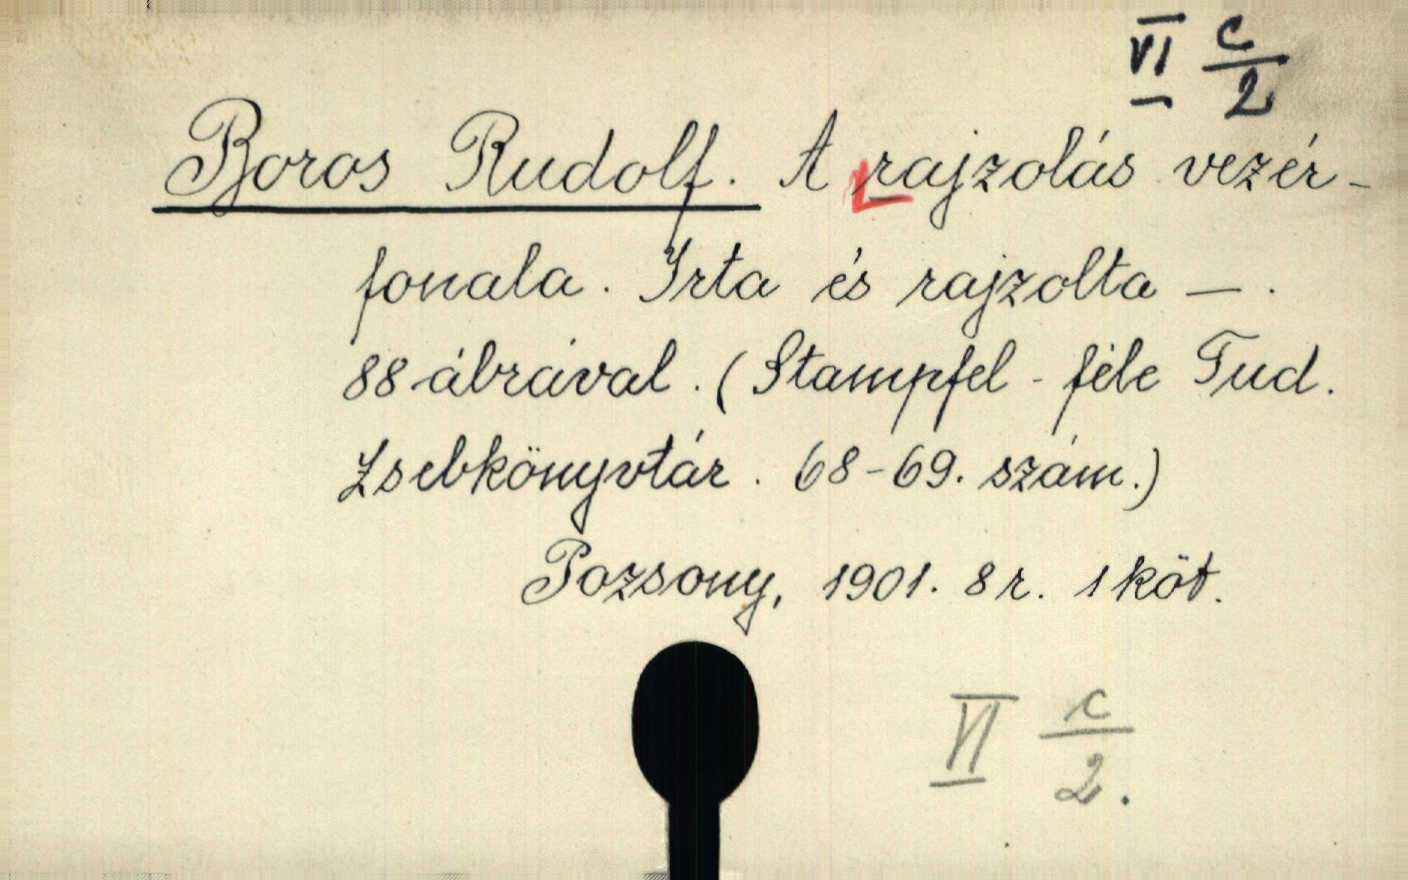 VI c/2
Boros Rudolf. A rajzolás vezér-
fonala. Irta és rajzolta — .
88 ábrával. (Stampfel - féle Tud.
Zsebkönyvtár. 68-69. szám.)
Pozsony, 1901. 8 r. 1 köt.
VI c/2.